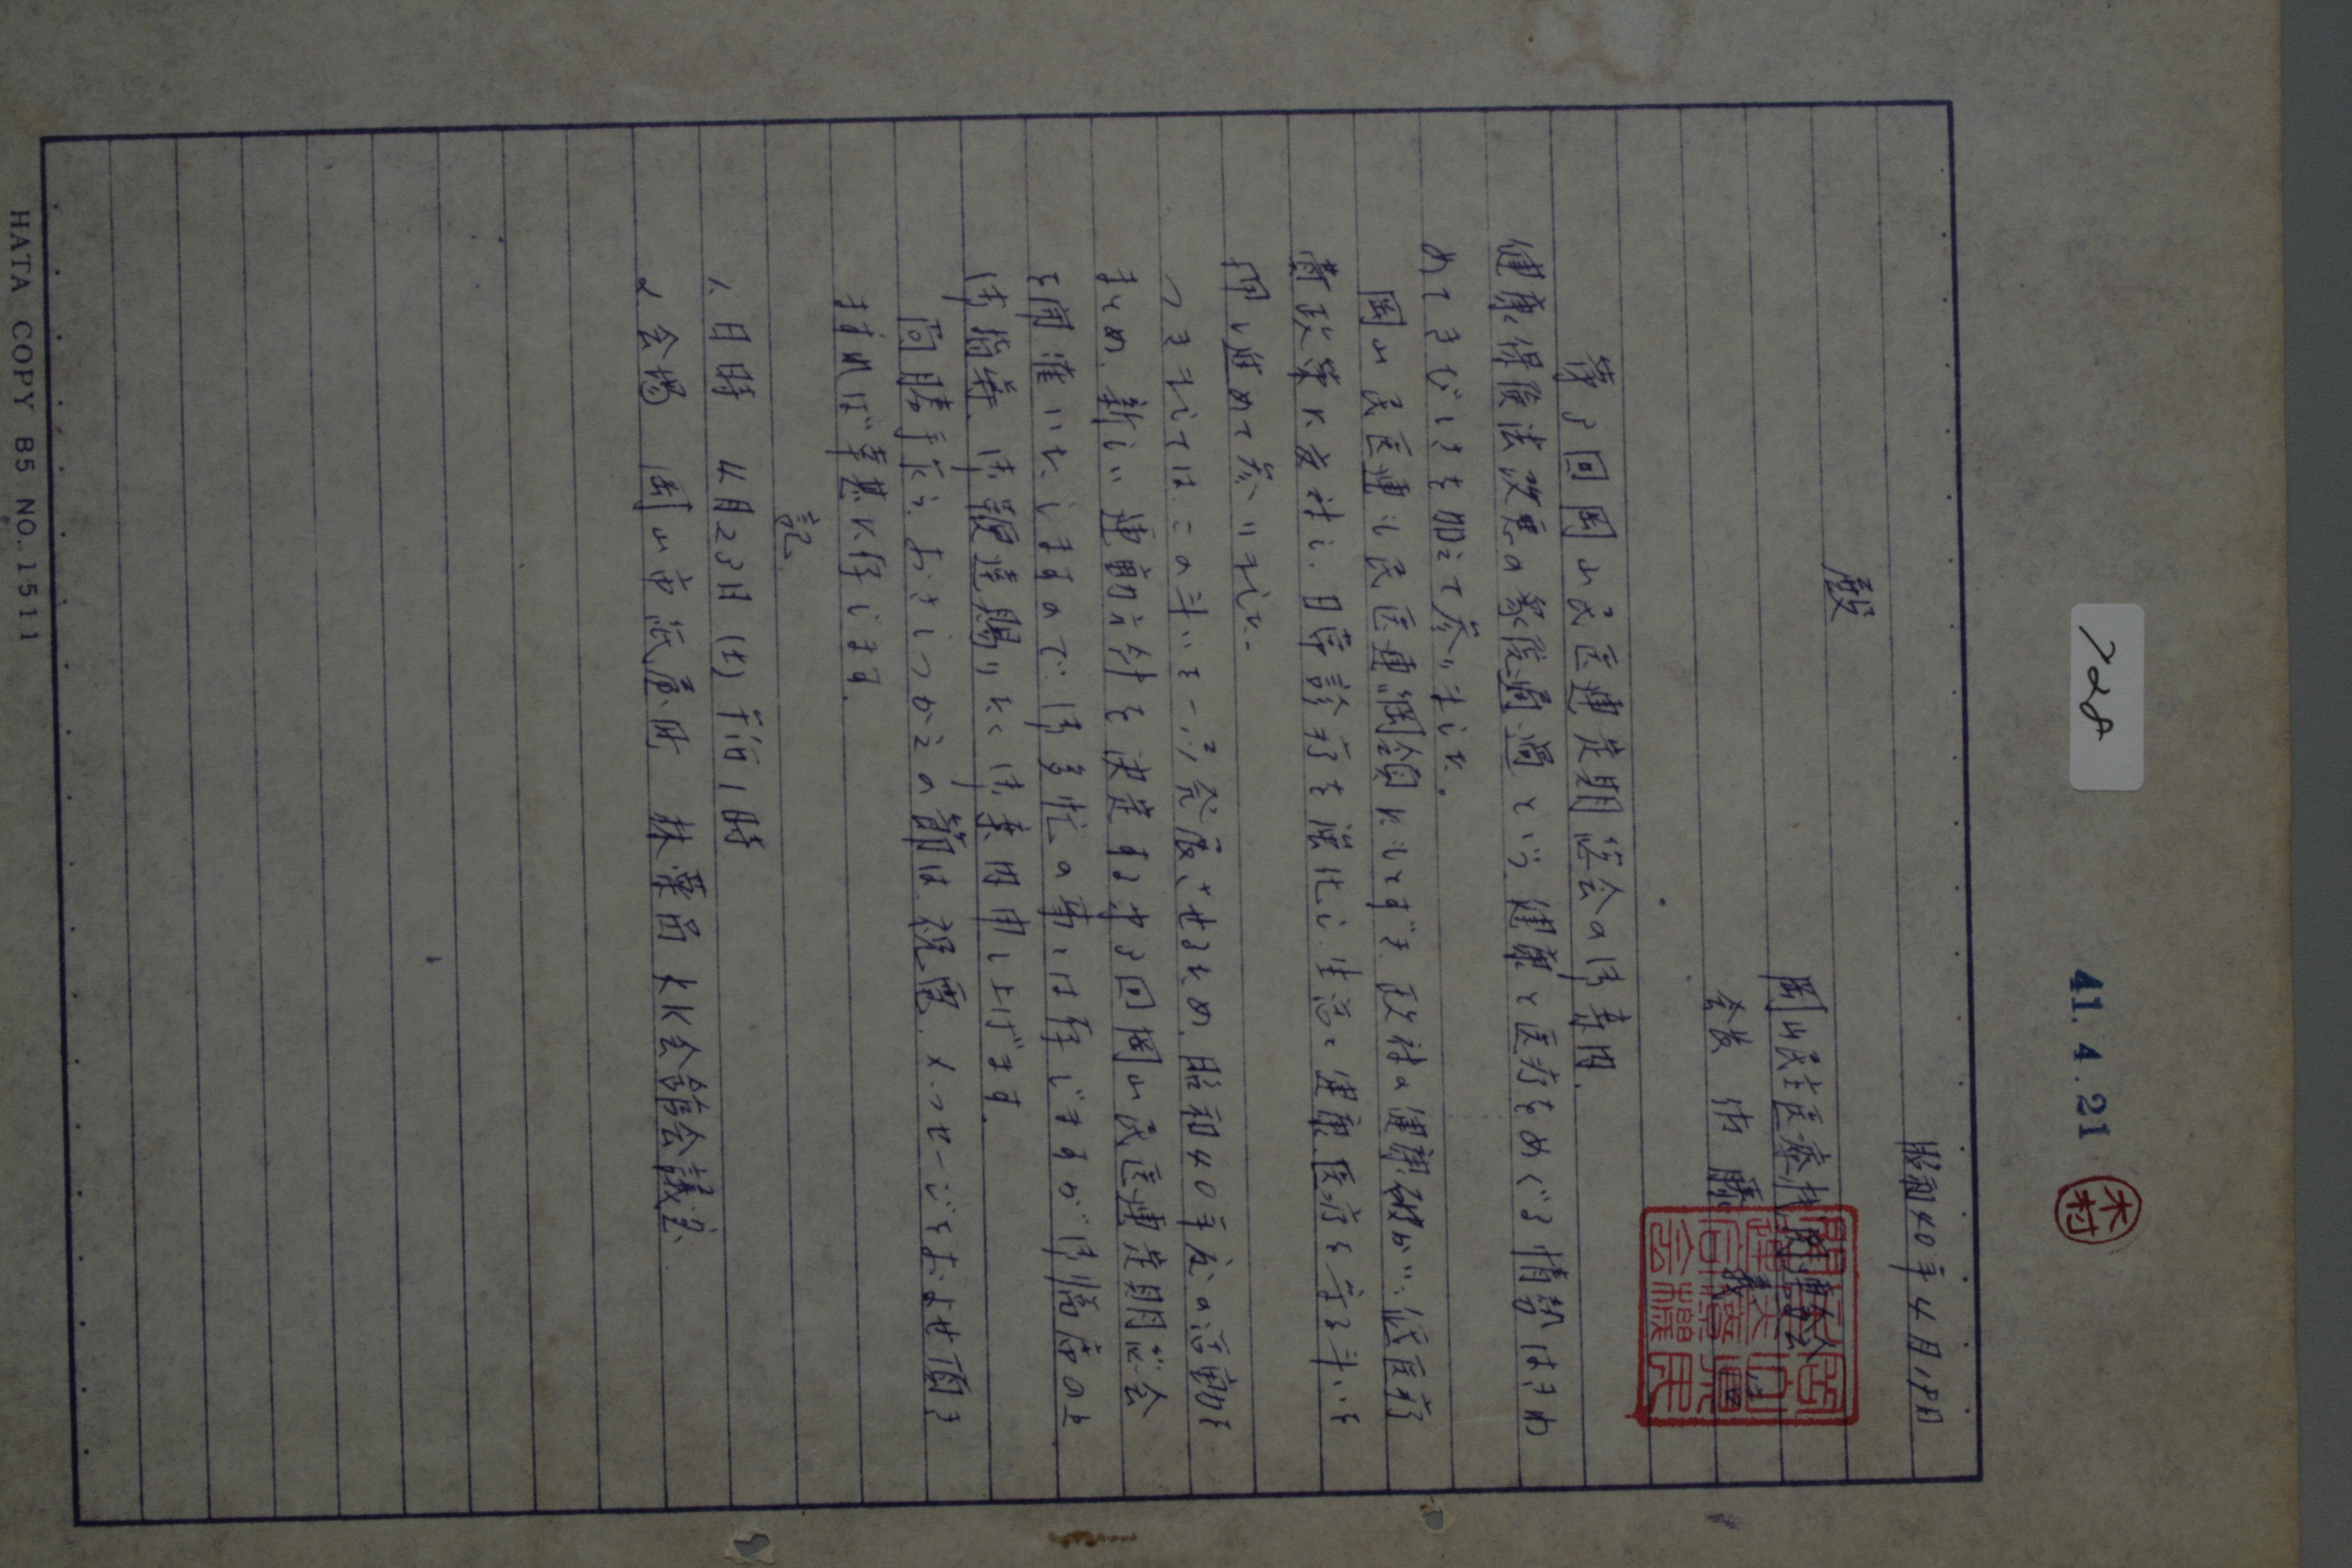 728
41.4.21
木村
昭和40年4月19日
殿
岡山民主医療機関連合会
会長
第3回岡山民医連定期総会の御案内
健康保険法改悪の衆院通過という、健康と医療をめぐる情勢はきわ
めてきびしさを加えて参りました。
岡山民医連も民医連綱領にもとずき、政府の健保破かい、低医療
費政策に反対し、日常診療を強化し、生活と健康、医療を守る斗いを
押し進めて参いりました。
つきましてはこの斗いを一そう発展させるため、昭和40年度の活動を
まとめ、新しい運動方針を決定する第3回岡山民医連定期総会
を開催いたしますので、御多忙の事とは存じますが御臨席の上
御指導、御鞭撻賜りたく御案内申し上げます。
尚勝手乍ら、おさしつかえの節は祝電、メッセージをおよせ頂き
ますれば幸甚に存じます。
記
1 日時 4月23日(土)午后1時
2 会場 岡山市 林薬品KK会館会議室
HATA COPY B5 NO.1511